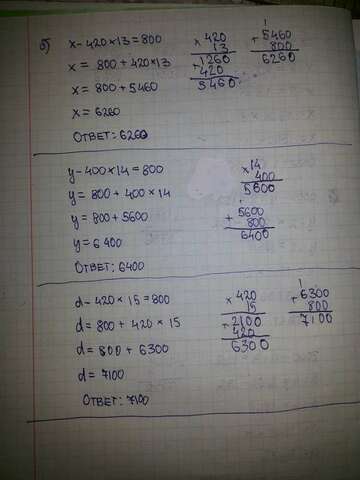 б) x - 420 × 13 = 800
x = 800 + 420 × 13
x = 800 + 5460
x = 6260
ОТВЕТ: 6260
× 420
13
+ 1260
420
5460
1
+ 5460
800
6260
y - 400 × 14 = 800
y = 800 + 400 × 14
y = 800 + 5600
y = 6400
ОТВЕТ: 6400
× 14
400
5600
1
+ 5600
800
6400
d - 420 × 15 = 800
d = 800 + 420 × 15
d = 800 + 6300
d = 7100
ОТВЕТ: 7100
× 420
15
+ 2100
420
6300
1
+ 6300
800
7100